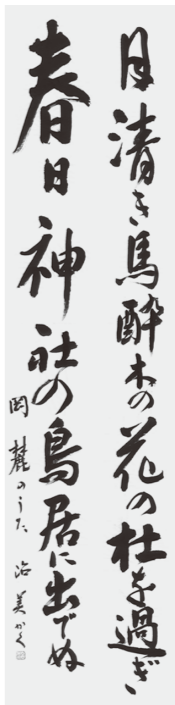 月清き馬酔木の花の杜を過ぎ
春日神社の鳥居に出でぬ
岡麓のうた 治美かく